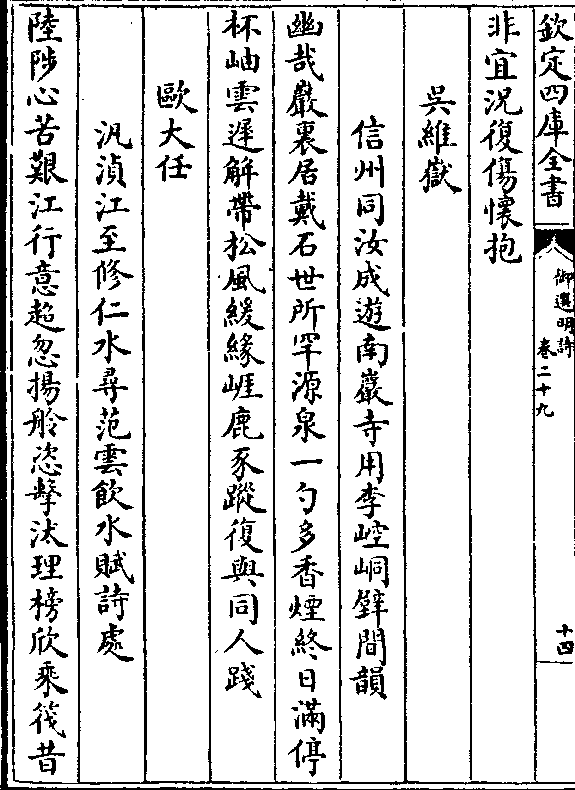 欽定四庫全書
御選明詩
卷二十九
十四
非宜況復傷懷抱
吳維嶽
信州同汝成遊南巖寺用李崆峒壁間韻
幽哉巖裏居戴石世所罕源泉一勺多香煙終日滿停
杯岫雲遲解帶松風緩緣崕鹿豕蹤復與同人踐
歐大任
汎湞江至修仁水尋范雲飲水賦詩處
陸陟心苦艱江行意超忽揚舲恣擊汰理榜欣乘筏昔